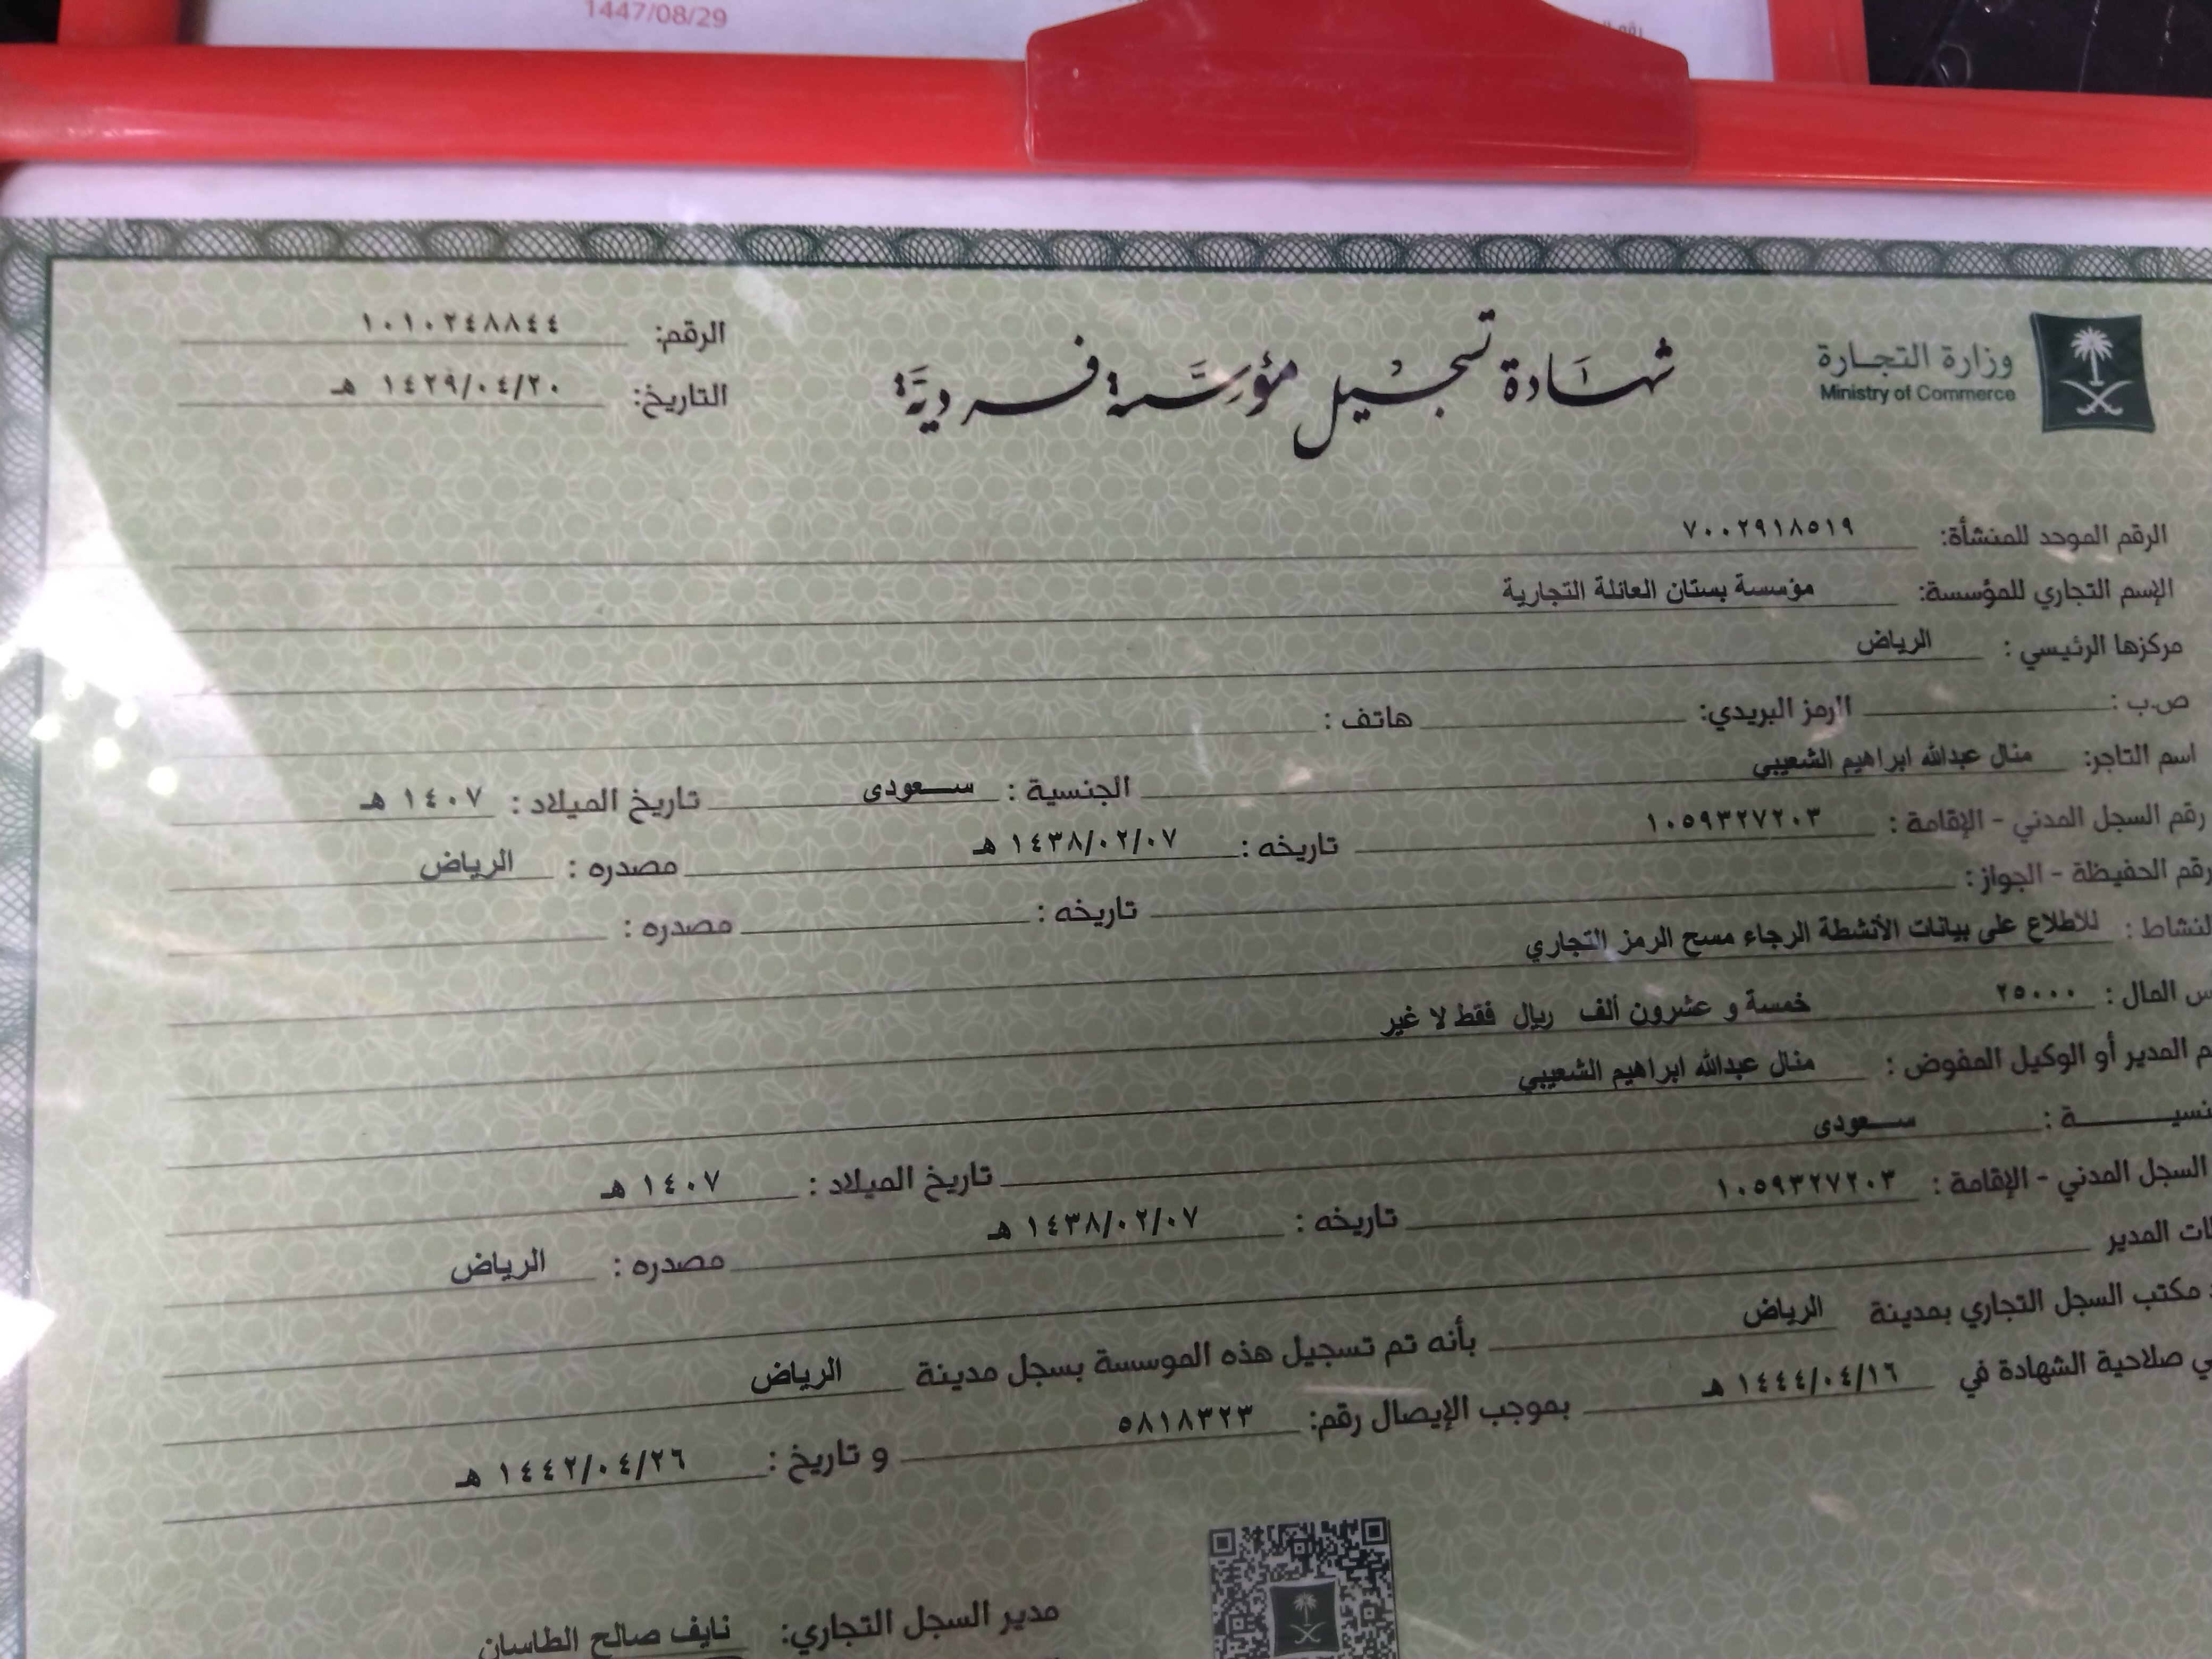 1447/08/29
وزارة التجارة
Ministry of Commerce
شهادة تسجيل مؤسسة فردية
الرقم: ١٠١٠٢٤٨٨٤٤
التاريخ: ١٤٢٩/٠٤/٢٠ هـ
الرقم الموحد للمنشأة: ٧٠٠٢٩١٨٥١٩
الإسم التجاري للمؤسسة: مؤسسة بستان العائلة التجارية
مركزها الرئيسي : الرياض
ص.ب : الرمز البريدي: هاتف :
اسم التاجر: منال عبدالله ابراهيم الشعيبي الجنسية : سعودى تاريخ الميلاد : ١٤٠٧ هـ
رقم السجل المدني - الإقامة : ١٠٥٩٣٢٧٢٠٣ تاريخه : ١٤٣٨/٠٢/٠٧ هـ مصدره : الرياض
رقم الحفيظة - الجواز : تاريخه : مصدره :
لنشاط : للاطلاع على بيانات الأنشطة الرجاء مسح الرمز التجاري
س المال : ٢٥٠٠٠ خمسة و عشرون ألف ريال فقط لا غير
م المدير أو الوكيل المفوض : منال عبدالله ابراهيم الشعيبي
نسيـة : سعودى تاريخ الميلاد : ١٤٠٧ هـ
السجل المدني - الإقامة : ١٠٥٩٣٢٧٢٠٣ تاريخه : ١٤٣٨/٠٢/٠٧ هـ مصدره : الرياض
ات المدير
مكتب السجل التجاري بمدينة الرياض بأنه تم تسجيل هذه الموسسة بسجل مدينة الرياض
ي صلاحية الشهادة في ١٤٤٤/٠٤/١٦ هـ بموجب الإيصال رقم: ٥٨١٨٣٢٣ و تاريخ : ١٤٤٢/٠٤/٢٦ هـ
مدير السجل التجاري: نايف صالح الطاسان